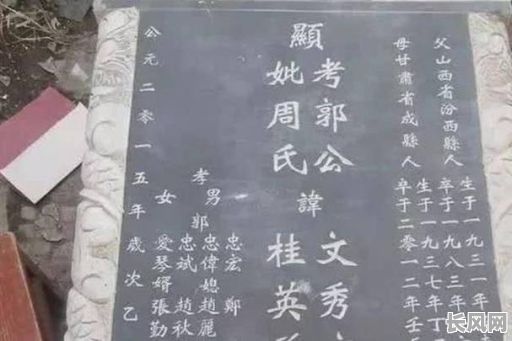 父山西省汾西縣人
生于一九三一年
卒于一九八三年
母甘肅省成縣人
生于一九三七年丁
卒于二零一二年壬
顯
考郭公
妣周氏
諱
文秀
桂英
孝男郭
忠宏 鄭
忠偉媳趙麗
忠斌 趙秋
女愛琴婿張勤
公元二零一五年歲次乙
长风网